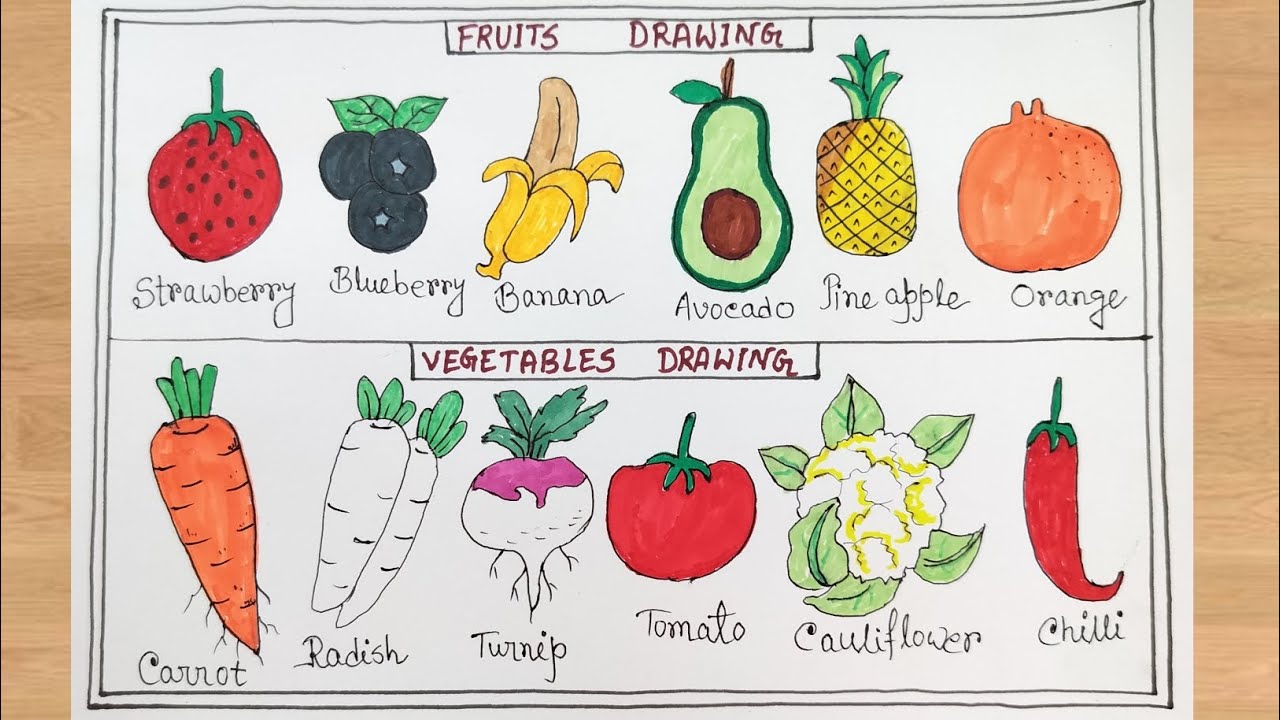 FRUITS DRAWING
Strawberry Blueberry Banana Avocado Pine apple Orange
VEGETABLES DRAWING
Carrot Radish Turnip Tomato Cauliflower Chilli